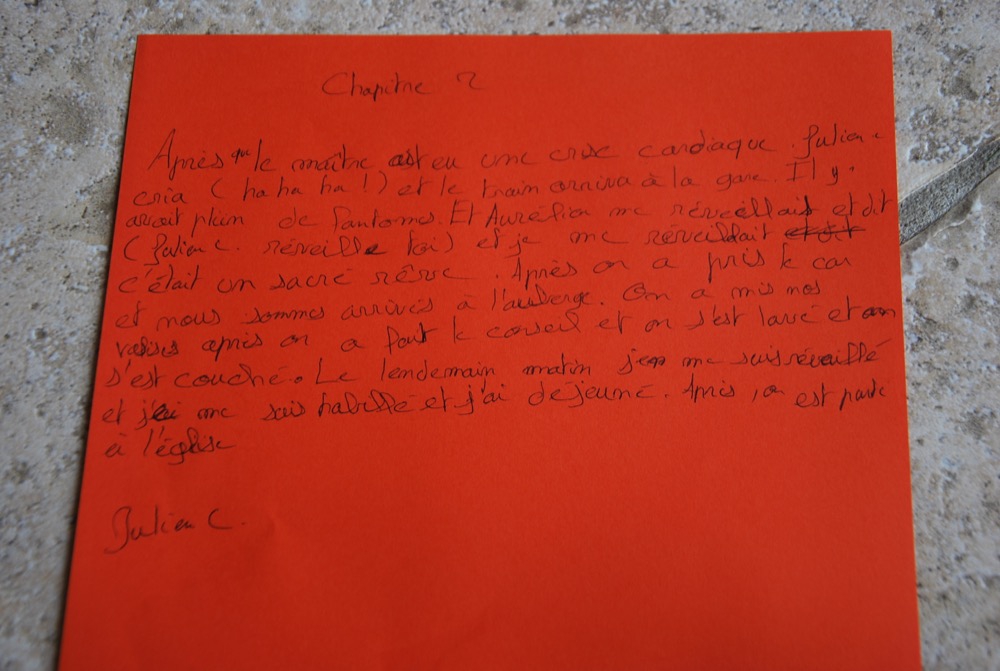 Chapitre 2
Après que le maître est eu une crise cardiaque. Julien c
cria (ha ha ha !) et le train arriva à la gare. Il y.
avait plein de fantomes. Et Aurélien me réveillait et dit
(Julien c. réveille toi) et je me réveillait et dit
c'était un sacré rêve. Après on a pris le car
et nous sommes arrivés à l'auberge. On a mis nos
valises après on a fait le conseil et on s'est lavé et on
s'est couché. Le lendemain matin je me suis réveillé
et je me suis habillé et j'ai déjeuné. Après, on est partie
à l'église
Julien C.